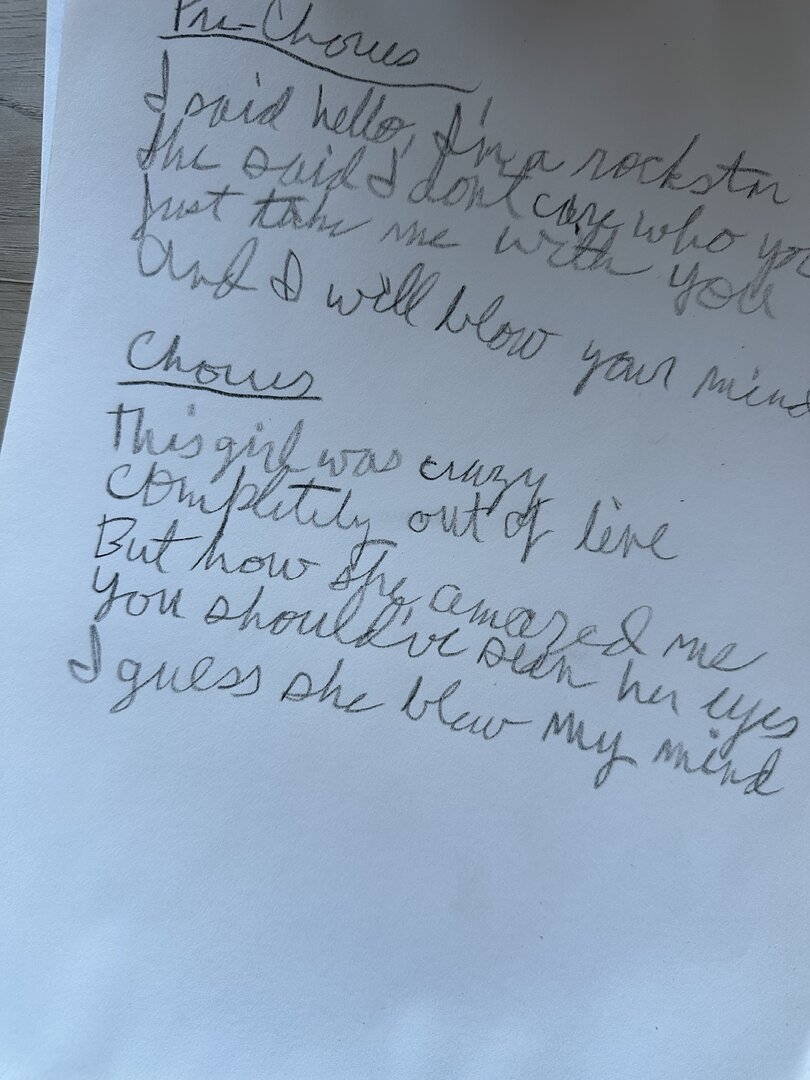 Pre-Chorus
I said hello, I'm a rockstar
She said I don't care who yo
Just take me with you
And I will blow your mind
Chorus
This girl was crazy
Completely out of line
But how she amazed me
You should've seen her eyes
I guess she blew my mind